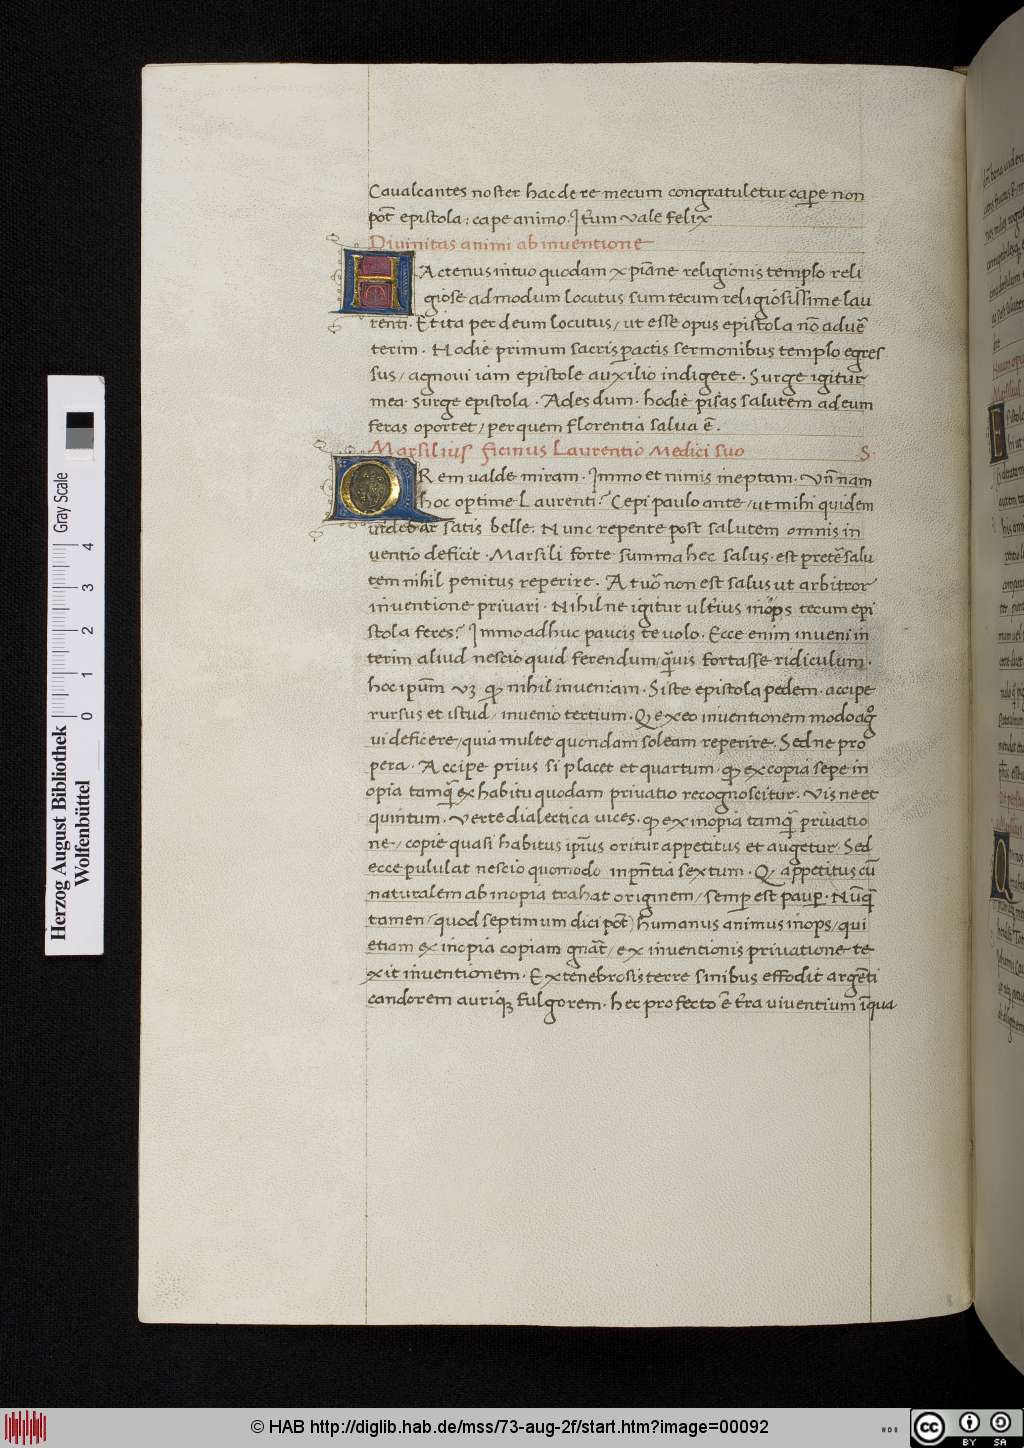 Caualcantes noster hac de re mecum congratuletur cape non
põt epistola: cape animo. Itum vale felix
Diuinitas animi ab inuentione
HActenus in tuo quodam xp̄iane religionis templo reli
giose admodum locutus sum tecum religiosissime lau
renti. Et ita per deum locutus, ut esse opus epistola nō aduē
terim. Hodie primum sacris ꝑactis sermonibus templo egres
sus, agnoui iam epistole auxilio indigere. Surge igitur
mea surge epistola. Ades dum. hodie pisas salutem ad eum
feras oportet, per quem florentia salua ē.
Marsilius ficinus Laurentio Medici suo S.
O Rem valde miram. Immo et nimis ineptam. Vn̄ nam
hoc optime Laurenti? Cepi paulo ante, ut mihi quidem
uidebar satis belle. Nunc repente post salutem omnis in
uentio deficit. Marsili forte summa hec salus. est pretẽ salu
tem nihil penitus reperire. At uõ non est salus ut arbitror
inuentione priuari. Nihil ne igitur ulterius inops tecum epi
stola feres? Immo adhuc paucis te uolo. Ecce enim inueni in
terim aliud nescio quid ferendum, quãuis fortasse ridiculum.
hoc ipsum vꝫ ꝙ nihil inueniam. Siste epistola pedem. accipe
rursus et istud, inuenio tertium. Q ex eo inuentionem modo ag
ui deficere, quia multe quondam soleam reperire. Sed ne pro
pera. Accipe prius si placet et quartum, ꝙ ex copia sepe in
opia tamq̃ ex habitu quodam priuatio recognoscitur. Vis ne et
quintum. Verte dialectica uices. ꝙ ex inopia tamq̃ priuatio
ne, copie quasi habitus ip̄ius oritur appetitus et augetur. Sed
ecce pululat nescio quomodo inpn̄tia sextum. Q appetitus cū
naturalem ab inopia trahat originem, semꝑ est pauꝑ. Nūq̃
tamen, quod septimum dici põt, humanus animus inops, qui
etiam ex inopia copiam gn̄at, ex inuentionis priuatione te
xit inuentionem. Ex tenebrosis terre sinibus effodit argēti
candorem auriqꝫ fulgorem. hec profecto ē tr̄a viuentium ī qua
Herzog August Bibliothek
Wolfenbüttel
Gray Scale
0 1 2 3 4
© HAB http://diglib.hab.de/mss/73-aug-2f/start.htm?image=00092
cc BY SA